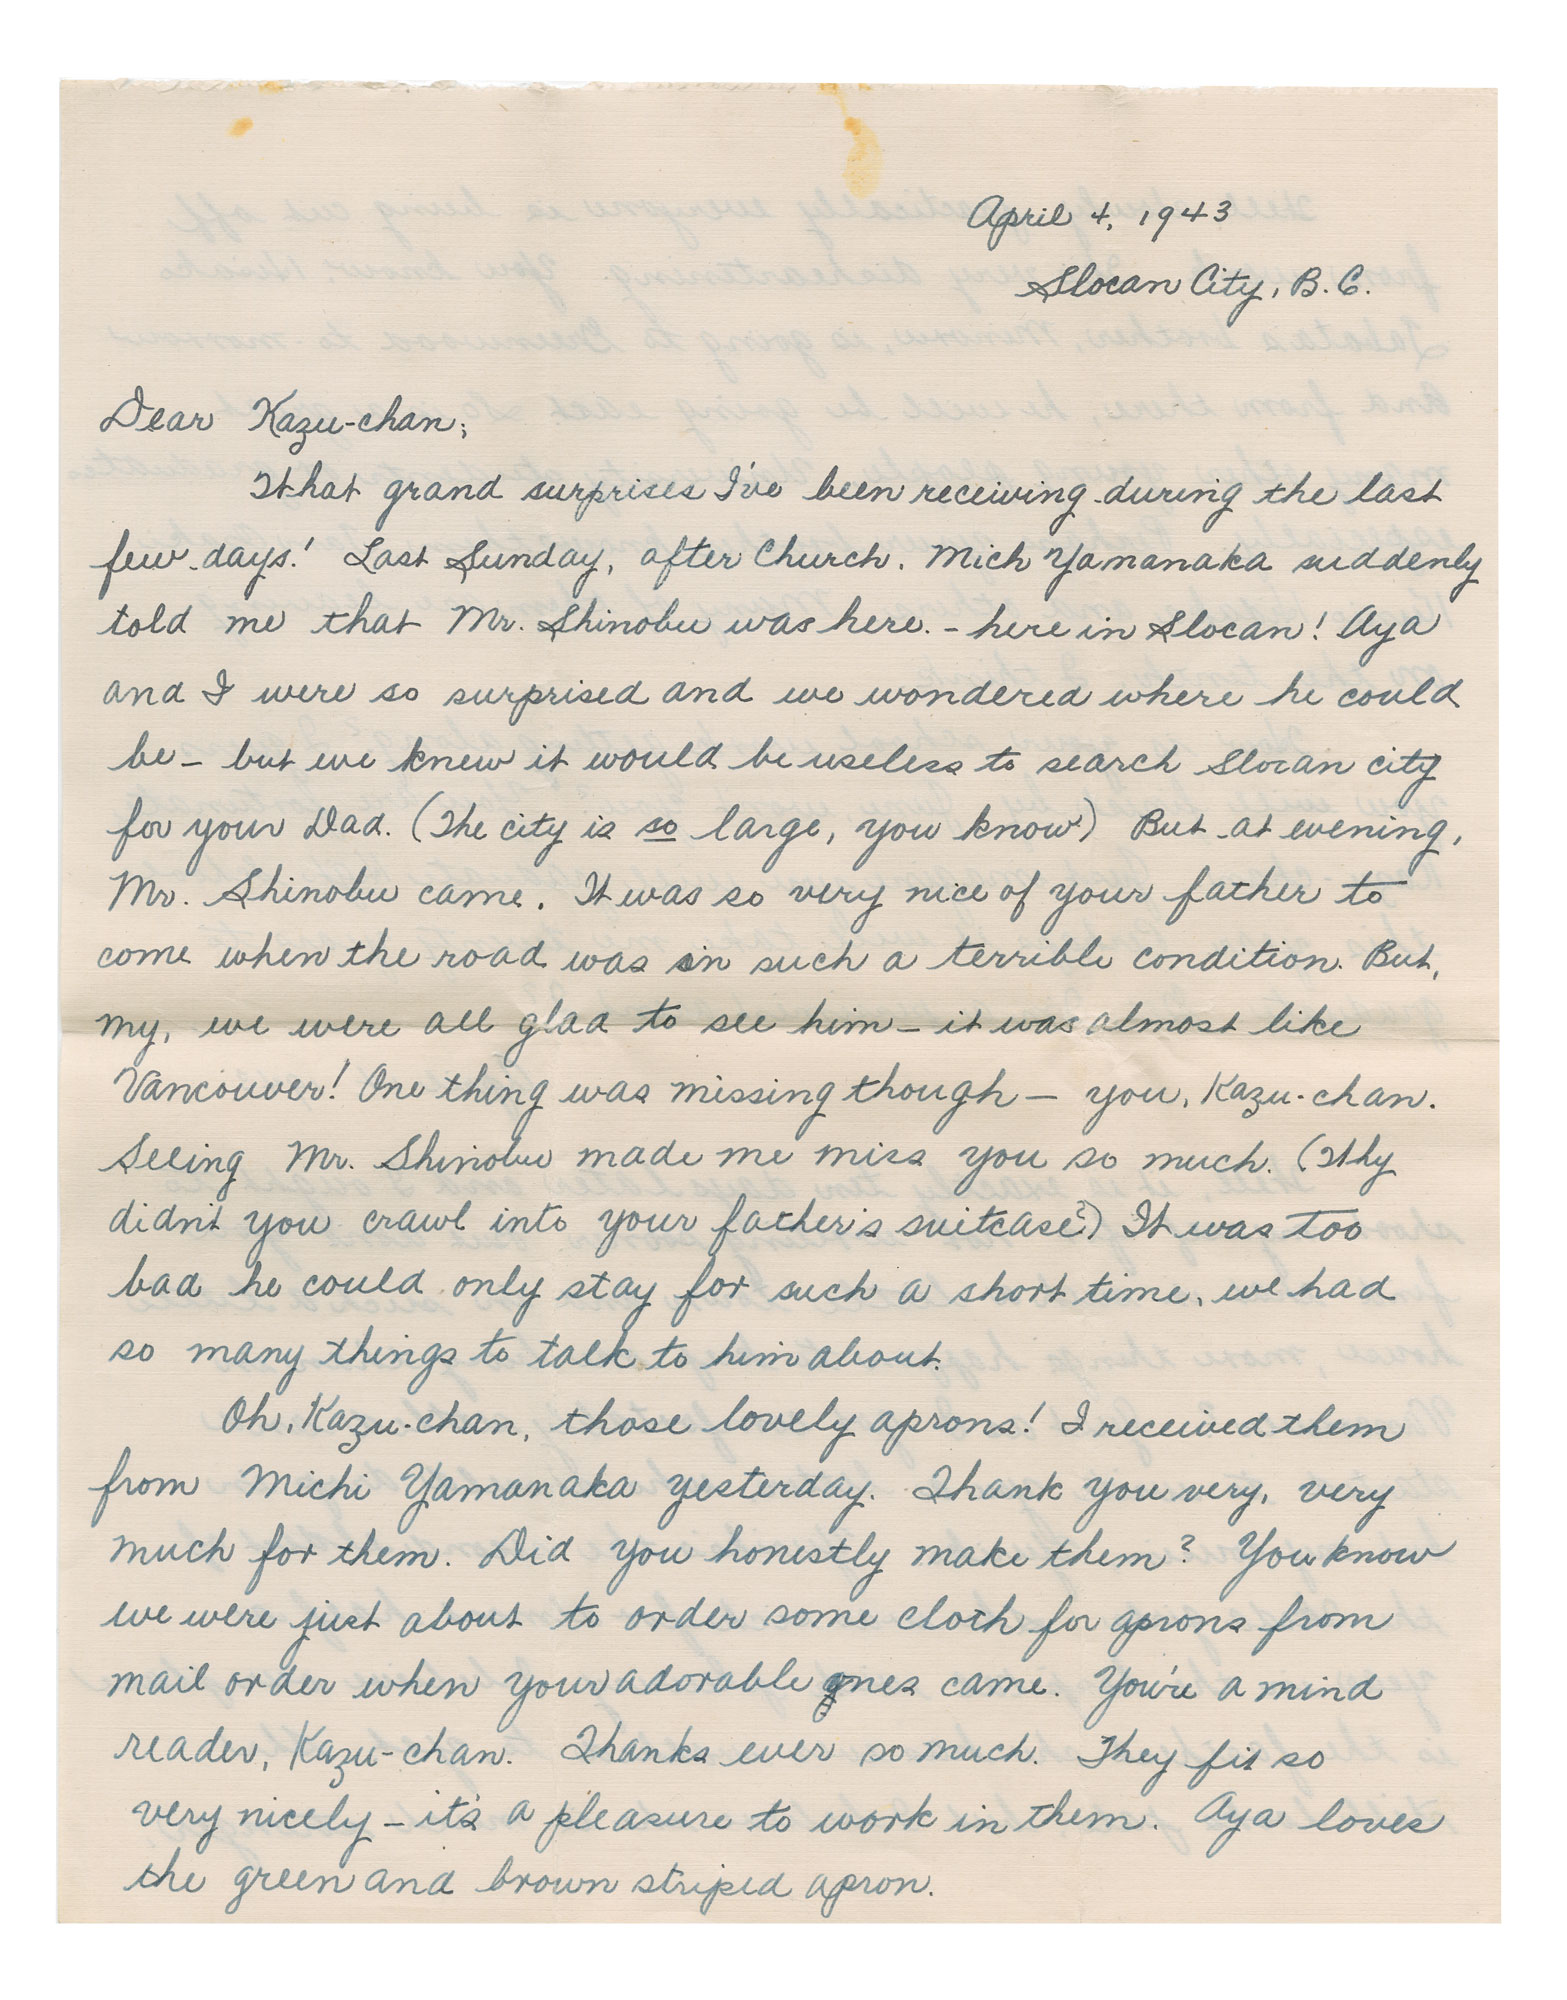 April 4, 1943
Slocan City, B.C.
Dear Kazu-chan;
What grand surprises I've been receiving during the last
few days! Last Sunday, after Church. Mich Yamanaka suddenly
told me that Mr. Shinobu was here. - here in Slocan! Aya
and I were so surprised and we wondered where he could
be - but we knew it would be useless to search Slocan city
for your Dad. (The city is so large, you know) But at evening,
Mr. Shinobu came. It was so very nice of your father to
come when the road was in such a terrible condition. But,
my, we were all glad to see him - it was almost like
Vancouver! One thing was missing though - you, Kazu-chan.
Seeing Mr. Shinobu made me miss you so much. (Why
didn't you crawl into your father's suitcase?) It was too
bad he could only stay for such a short time, we had
so many things to talk to him about.
Oh, Kazu-chan, those lovely aprons! I received them
from Michi Yamanaka yesterday. Thank you very, very
much for them. Did you honestly make them? You know
we were just about to order some cloth for aprons from
mail order when your adorable ones came. You're a mind
reader, Kazu-chan. Thanks ever so much. They fit so
very nicely - it's a pleasure to work in them. Aya loves
the green and brown striped apron.